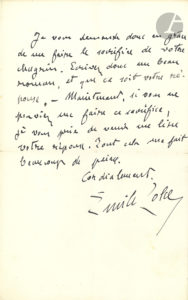 Je vous demande donc en grâce
de me faire le sacrifice de votre
chagrin. Ecrivez donc un beau
roman, et que ce soit votre ré-
ponse. — Maintenant, si vous ne
pouviez me faire ce sacrifice,
je vous prie de venir me lire
votre réponse. Tout cela me fait
beaucoup de peine.
Cordialement
Emile Zola